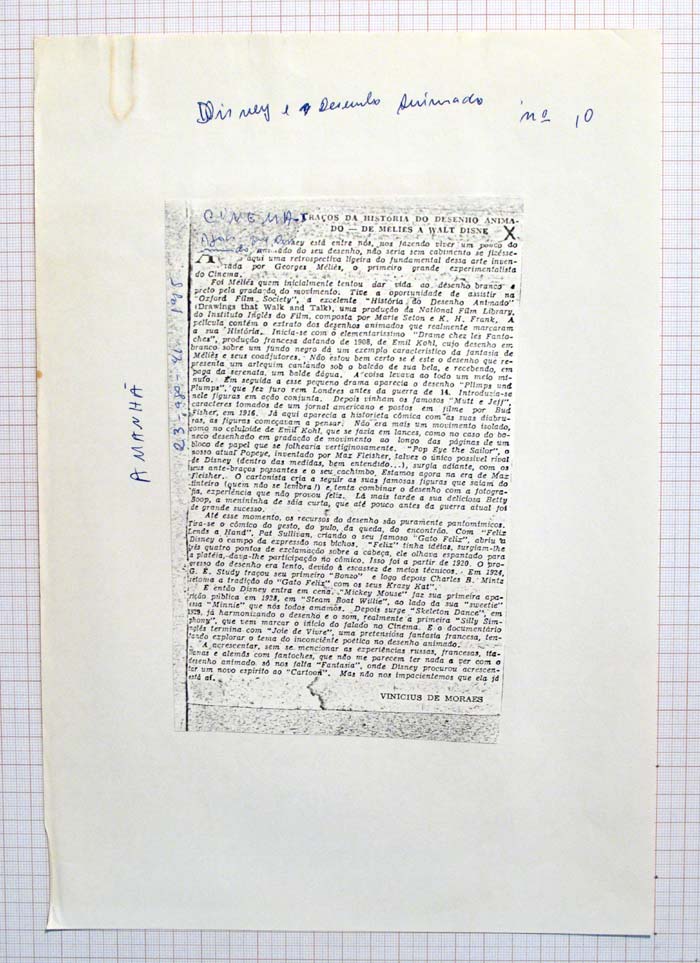 Disney e o Desenho Animado nº 10
CINEMA
TRAÇOS DA HISTÓRIA DO DESENHO ANIMA-
DO — DE MELIES A WALT DISNE X
está entre nós, nos fazendo viver um pouco do
do seu desenho, não seria sem cabimento se fizésse-
aqui uma retrospectiva ligeira do fundamental dessa arte inven-
tada por Georges Méliès, o primeiro grande experimentalista
do Cinema.
Foi Méliès quem inicialmente tentou dar vida ao desenho branco e
preto pela gradação do movimento. Tive a oportunidade de assistir na
"Oxford Film Society", a excelente "História do Desenho Animado"
(Drawings that Walk and Talk), uma produção da National Film Library,
do Instituto Inglês do Film, composta por Marie Seton e K. H. Frank. A
película contém o extrato dos desenhos animados que realmente marcaram
a sua História. Inicia-se com o elementaríssimo "Drame chez les Fanto-
ches", produção francesa datando de 1908, de Emil Kohl, cujo desenho em
branco sobre um fundo negro dá um exemplo característico da fantasia de
Méliès e seus coadjutores. Não estou bem certo se é este o desenho que re-
presenta um arlequim cantando sob o balcão de sua bela, e recebendo, em
paga da serenata, um balde dágua. A coisa levava ao todo um meio mi-
nuto. Em seguida a esse pequeno drama aparecia o desenho "Flimps und
Plumps", que fez furo rem Londres antes da guerra de 14. Introduzia-se
nele figuras em ação conjunta. Depois vinham os famosos "Mutt e Jeff",
caracteres tomados de um jornal americano e postos em filme por Bud
Fisher, em 1916. Já aqui aparecia a historieta cômica com as suas diabru-
ras, as figuras começavam a pensar. Não era mais um movimento isolado,
como no celuloide de Emil Kohl, que se fazia em lances, como no caso do bo-
neco desenhado em gradação de movimento ao longo das páginas de um
bloco de papel que se folhearia vertiginosamente. "Pop Eye the Sailor", o
nosso atual Popeye, inventado por Max Fleisher, talvez o único possível rival
de Disney (dentro das medidas, bem entendido...), surgia adiante, com os
seus ante-braços possantes e o seu cachimbo. Estamos agora na era de Max
Fleisher. O cartonista cria a seguir as suas famosas figuras que saiam do
tinteiro (quem não se lembra?) e tenta combinar o desenho com a fotogra-
fia, experiência que não provou feliz. Lá mais tarde a sua deliciosa Betty
Boop, a menininha de sáia curta, que até pouco antes da guerra atual foi
de grande sucesso.
Até esse momento, os recursos do desenho são puramente pantomímicos.
Tira-se o cômico do gesto, do pulo, da queda, do encontrão. Com "Felix
Lends a Hand", Pat Sullivan, criando o seu famoso "Gato Felix", abriu a
Disney o campo da expressão nos bichos. "Felix" tinha idéias, surgiam-lhe
três quatro pontos de exclamação sobre a cabeça, ele olhava espantado para
a platéia, dava-lhe participação no cômico. Isso foi a partir de 1920. O pro-
gresso do desenho era lento, devido à escassês de meios técnicos. Em 1924,
G. E. Study traçou seu primeiro "Bonzo" e logo depois Charles B. Mintz
retoma a tradição do "Gato Felix" com os seus Krazy Kat".
E então Disney entra em cena. "Mickey Mouse" faz sua primeira apa-
rição pública em 1928, em "Steam Boat Willie", ao lado da sua "sweetie"
essa "Minnie" que nós todos amamos. Depois surge "Skeleton Dance", em
1929, já harmonizando o desenho e o som, realmente a primeira "Silly Sim-
phony", que vem marcar o início do falado no Cinema. E o documentário
inglês termina com "Joie de Vivre", uma pretensiosa fantasia francesa, ten-
tando explorar o tema do inconciente poético no desenho animado.
A acrescentar, sem se mencionar as experiências russas, francesas, ita-
lianas e alemãs com fantoches, que não me parecem ter nada a ver com o
desenho animado, só nos falta "Fantasia", onde Disney procurou acrescen-
tar um novo espírito ao "Cartoon". Mas não nos impacientemos que ela já
está aí.
VINICIUS DE MORAES
A MANHÃ